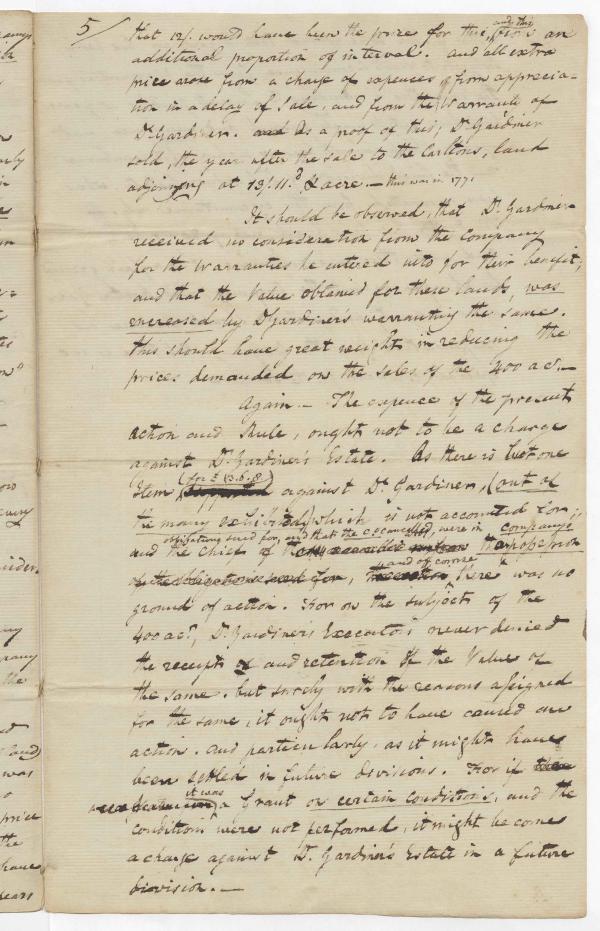 5/
that 12/. would have been the price for this, and this from an
additional proportion of interval. and all extra
price arose from a charge of expences & from apprecia-
tion in a delay of Sale, and from the Warrants of
Dr. Gardiner. and As a proof of this; Dr. Gardiner
sold, the year after the sale to the Carltons, land
adjoining at 13/.11.d ⅌ acre.— this was in 1771
It should be observed, that Dr. Gardiner
received no consideration from the Company
for the Warranties he entered into for their benefit;
and that the Value obtained for these lands, was
encreased by Dr Gardiner's warranting the same.
this should have great weight in reducing the
prices demanded on the sales of the 400 acs.—
Again.— The expence of the present
action and Rule, ought not to be a charge
against Dr. Gardiner's Estate. As there is but one
Item (for £13.6.8) against Dr. Gardiner, (out of
the many exhibited) which is not accounted for;
and the chief of the obligations sued for, and that the cancelled, were in Company's possession
for, and of course there was no
ground of action. For on the subject of the
400 acs, Dr. Gardiner's Executors never denied
the receipt of and retention of the Value of
the same. but surely with the reasons assigned
for the same, it ought not to have caused an
action. and particularly, as it might have
been settled in future divisions. For if
it was a Grant on certain conditions, and the
conditions were not performed, it might become
a charge against Dr. Gardiner's Estate in a future
division.—